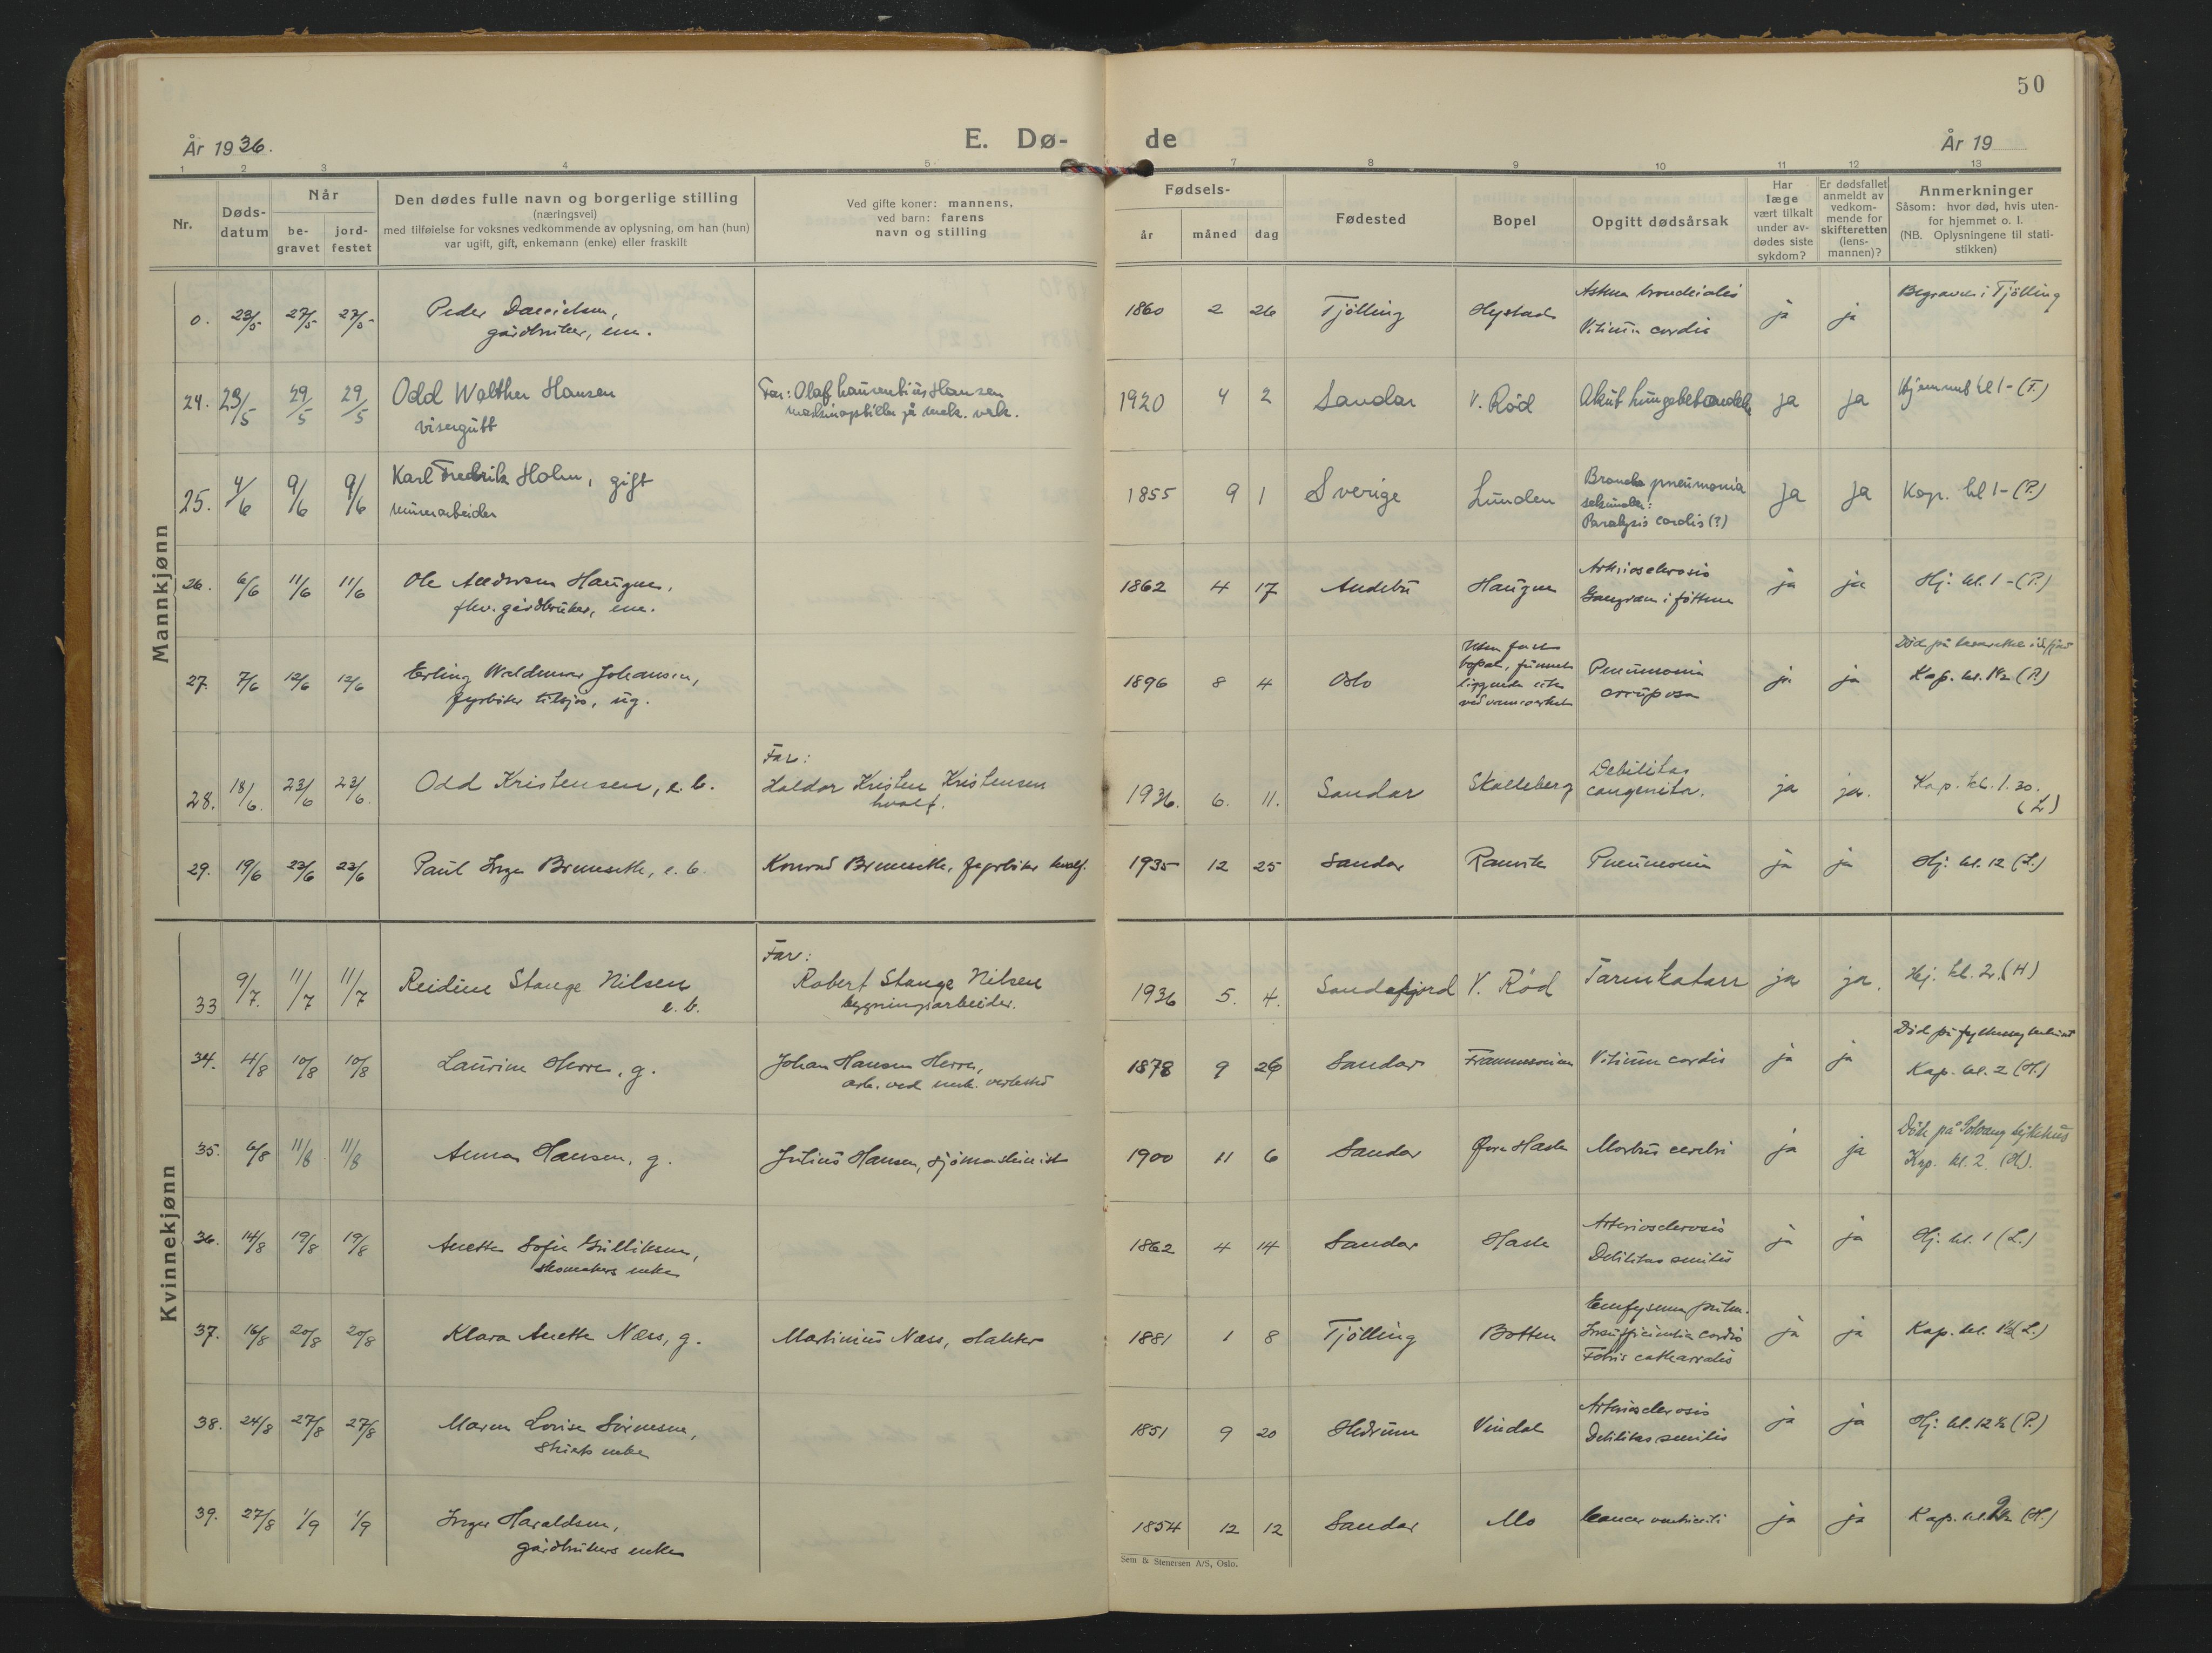 50
År 1936.
E. Dø-
de
År 19
1 2 3 4 5 7 8 9 10 11 12 13
Nr.
Døds-
datum
Når
be-
gravet
jord-
festet
Den dødes fulle navn og borgerlige stilling
(næringsvei)
med tilføielse for voksnes vedkommende av oplysning, om han (hun)
var ugift, gift, enkemann (enke) eller fraskilt
Ved gifte koner: mannens,
ved barn: farens
navn og stilling
Fødsels-
år måned dag
Fødested
Bopel
Opgitt dødsårsak
Har
læge
vært tilkalt
under av-
dødes siste
sykdom?
Er dødsfallet
anmeldt av
vedkom-
mende for
skifteretten
(lens-
mannen)?
Anmerkninger
Såsom: hvor død, hvis uten-
for hjemmet o. l.
(NB. Oplysningene til stati-
stikken)
Mannkjønn
0. 23/5 27/5 27/5 Peder Danielsen,
gårdbruker, em.
1860 2 26 Tjölling Hystad
Vitium cordis ja ja
Begravet i Tjölling
24. 23/5 29/5 29/5 Odd Walther Hansen
visergutt
Far: Olaf Laurentius Hansen
1920 4 2 Sandar V. Röd ja ja
Hjemmet kl 1 - (T.)
25. 4/6 9/6 9/6 Karl Fredrik Holm, gift
murerarbeider
1855 9 1 Sverige Lunden
Broncho pneumonia
Paralysis cordis (?)
ja ja Kap. kl 1 - (P.)
26. 6/6 11/6 11/6 Ole Andersen Haugen,
fhv. gårdbruker, em.
1862 4 17 Andebu Haugen
Arteriosclerosis
i föttene
ja ja Hj. kl. 1 - (P.)
27. 7/6 12/6 12/6 Erling Waldemar Johansen,
fyrböter tilsjös, ug.
1896 8 4 Oslo
Uten fast
bopel, funnet
liggende
Pneumonia
crouposa
ja ja
Död på
Kap. kl. 1½ (P.)
28. 18/6. 23/6 23/6. Odd Kristensen, e. b.
Far:
Haldor Kristen Kristensen
hvalf.
1936. 6. 11. Sandar Skalleberg
Debilitas
congenita.
ja ja.
Kap. kl. 1.30.
(L)
29. 19/6 23/6 23/6 Paul Inge Brunseth, e. b. Konrad Brunseth, fyrböter hvalf.
1935 12 25 Sandar Ranvik Pneumonia ja ja Hj. kl. 12 (L.)
Kvinnekjønn
33 9/7. 11/7 11/7 Reidun Stange Nilsen
e. b.
Far:
Robert Stange Nilsen
bygningsarbeider.
1936 5. 4. Sandefjord V. Röd Tarmkatarr ja ja. Hj. kl. 2. (H)
34. 4/8 10/8 10/8 Laurine Herre, g.
Johan Hansen Herre,
arb. ved mek. verksted
1878 9 26 Sandar Vitium cordis ja ja
Död på
Kap. kl. 2 (H.)
35. 6/8 11/8 11/8 Anna Hansen, g. Julius Hansen, sjömaskinist
1900 11 6 Sandar Øvre Hasle Morbus cerebri ja ja
Död på Solvang sykehus
Kap. kl. 2. (H).
36. 14/8 19/8 19/8 Anette Sofie Gulliksen,
skomakers enke
1862 4 14 Sandar Hasle
Arteriosclerosis
Debilitas senilis
ja ja Hj. kl. 1 (L.)
37. 16/8 20/8 20/8 Klara Anette Næss, g. Martinius Næss,
1881 1 8 Tjölling Botten
Emfysema pulm.
Insufficientia cordis
catharralis
ja ja Kap. kl. 1½ (L.)
38. 24/8 27/8 27/8 Maren Lovise Sörensen,
enke
1851 9 20 Hedrum Vindal
Arteriosclerosis
Debilitas senilis
ja ja Hj. kl. 12½ (P.)
39. 27/8 1/9 1/9 Inger Haraldsen,
gårdbrukers enke
1854 12 12 Sandar Mo Cancer ventriculi ja ja Kap. kl. (H.)
Sem & Stenersen A/S, Oslo.